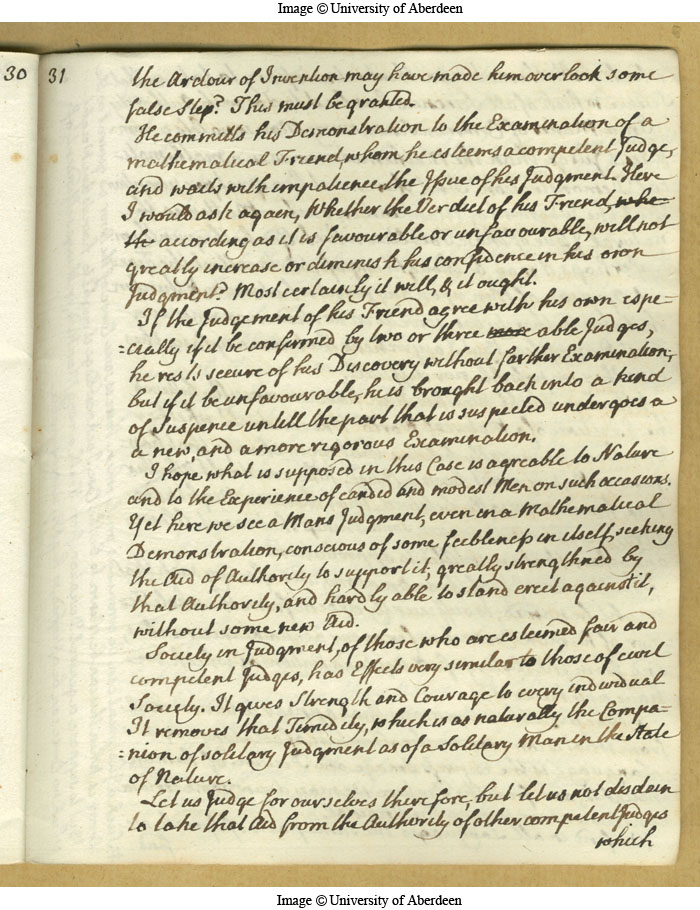 Image © University of Aberdeen
30 31
the Ardour of Invention may have made him overlook some
false Step? This must be granted.
He committs his Demonstration to the Examination of a
mathematical Friend, whom he esteems a competent Judge,
and waits with impatience the Issue of his Judgment. Here
I would ask again, Whether the Verdict of his Friend, whe-
the according as it is favourable or unfavourable, will not
greatly increase or diminish his confidence in his own
Judgment? Most certainly it will, & it ought.
If the Judgement of his Friend agree with his own espe-
=cially if it be confirmed by two or three more able Judges,
he rests secure of his Discovery without farther Examination;
but if it be unfavourable, he is brought back into a kind
of Suspence untill the part that is suspected undergoes a
a new, and a more rigorous Examination.
I hope what is supposed in this Case is agreable to Nature
and to the Experience of candid and modest Men on such occasions.
Yet here we see a Mans Judgment, even in a Mathematical
Demonstration, conscious of some feebleness in itself, seeking
the Aid of Authority to support it, greatly strengthned by
that Authority, and hardly able to stand erect against it,
without some new Aid.
Society in Judgment, of those who are esteemed fair and
competent Judges, has Effects very similar to those of civil
Society. It gives Strength and Courage to every individual
It removes that Timidity, which is as naturally the Compa-
=nion of solitary Judgment as of a Solitary Man in the State
of Nature.
Let us Judge for ourselves therefore, but let us not disdain
to take that Aid from the Authority of other competent Judges
which
Image © University of Aberdeen